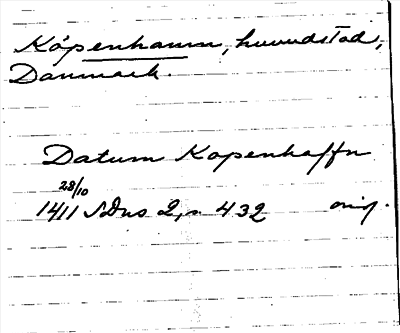 Köpenhamn, huvudstad,
Danmark.
Datum Kopenhaffn
28/10
1411 SDns 2, s 432 orig.